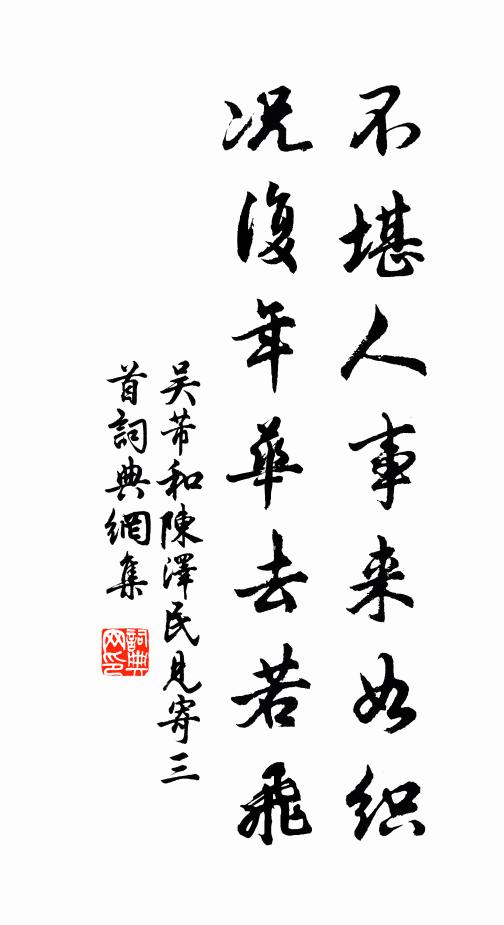 不堪人事来如织
况復年華去若飛
吴芾和陳澤民見寄三
首詞典網集
詞典网印